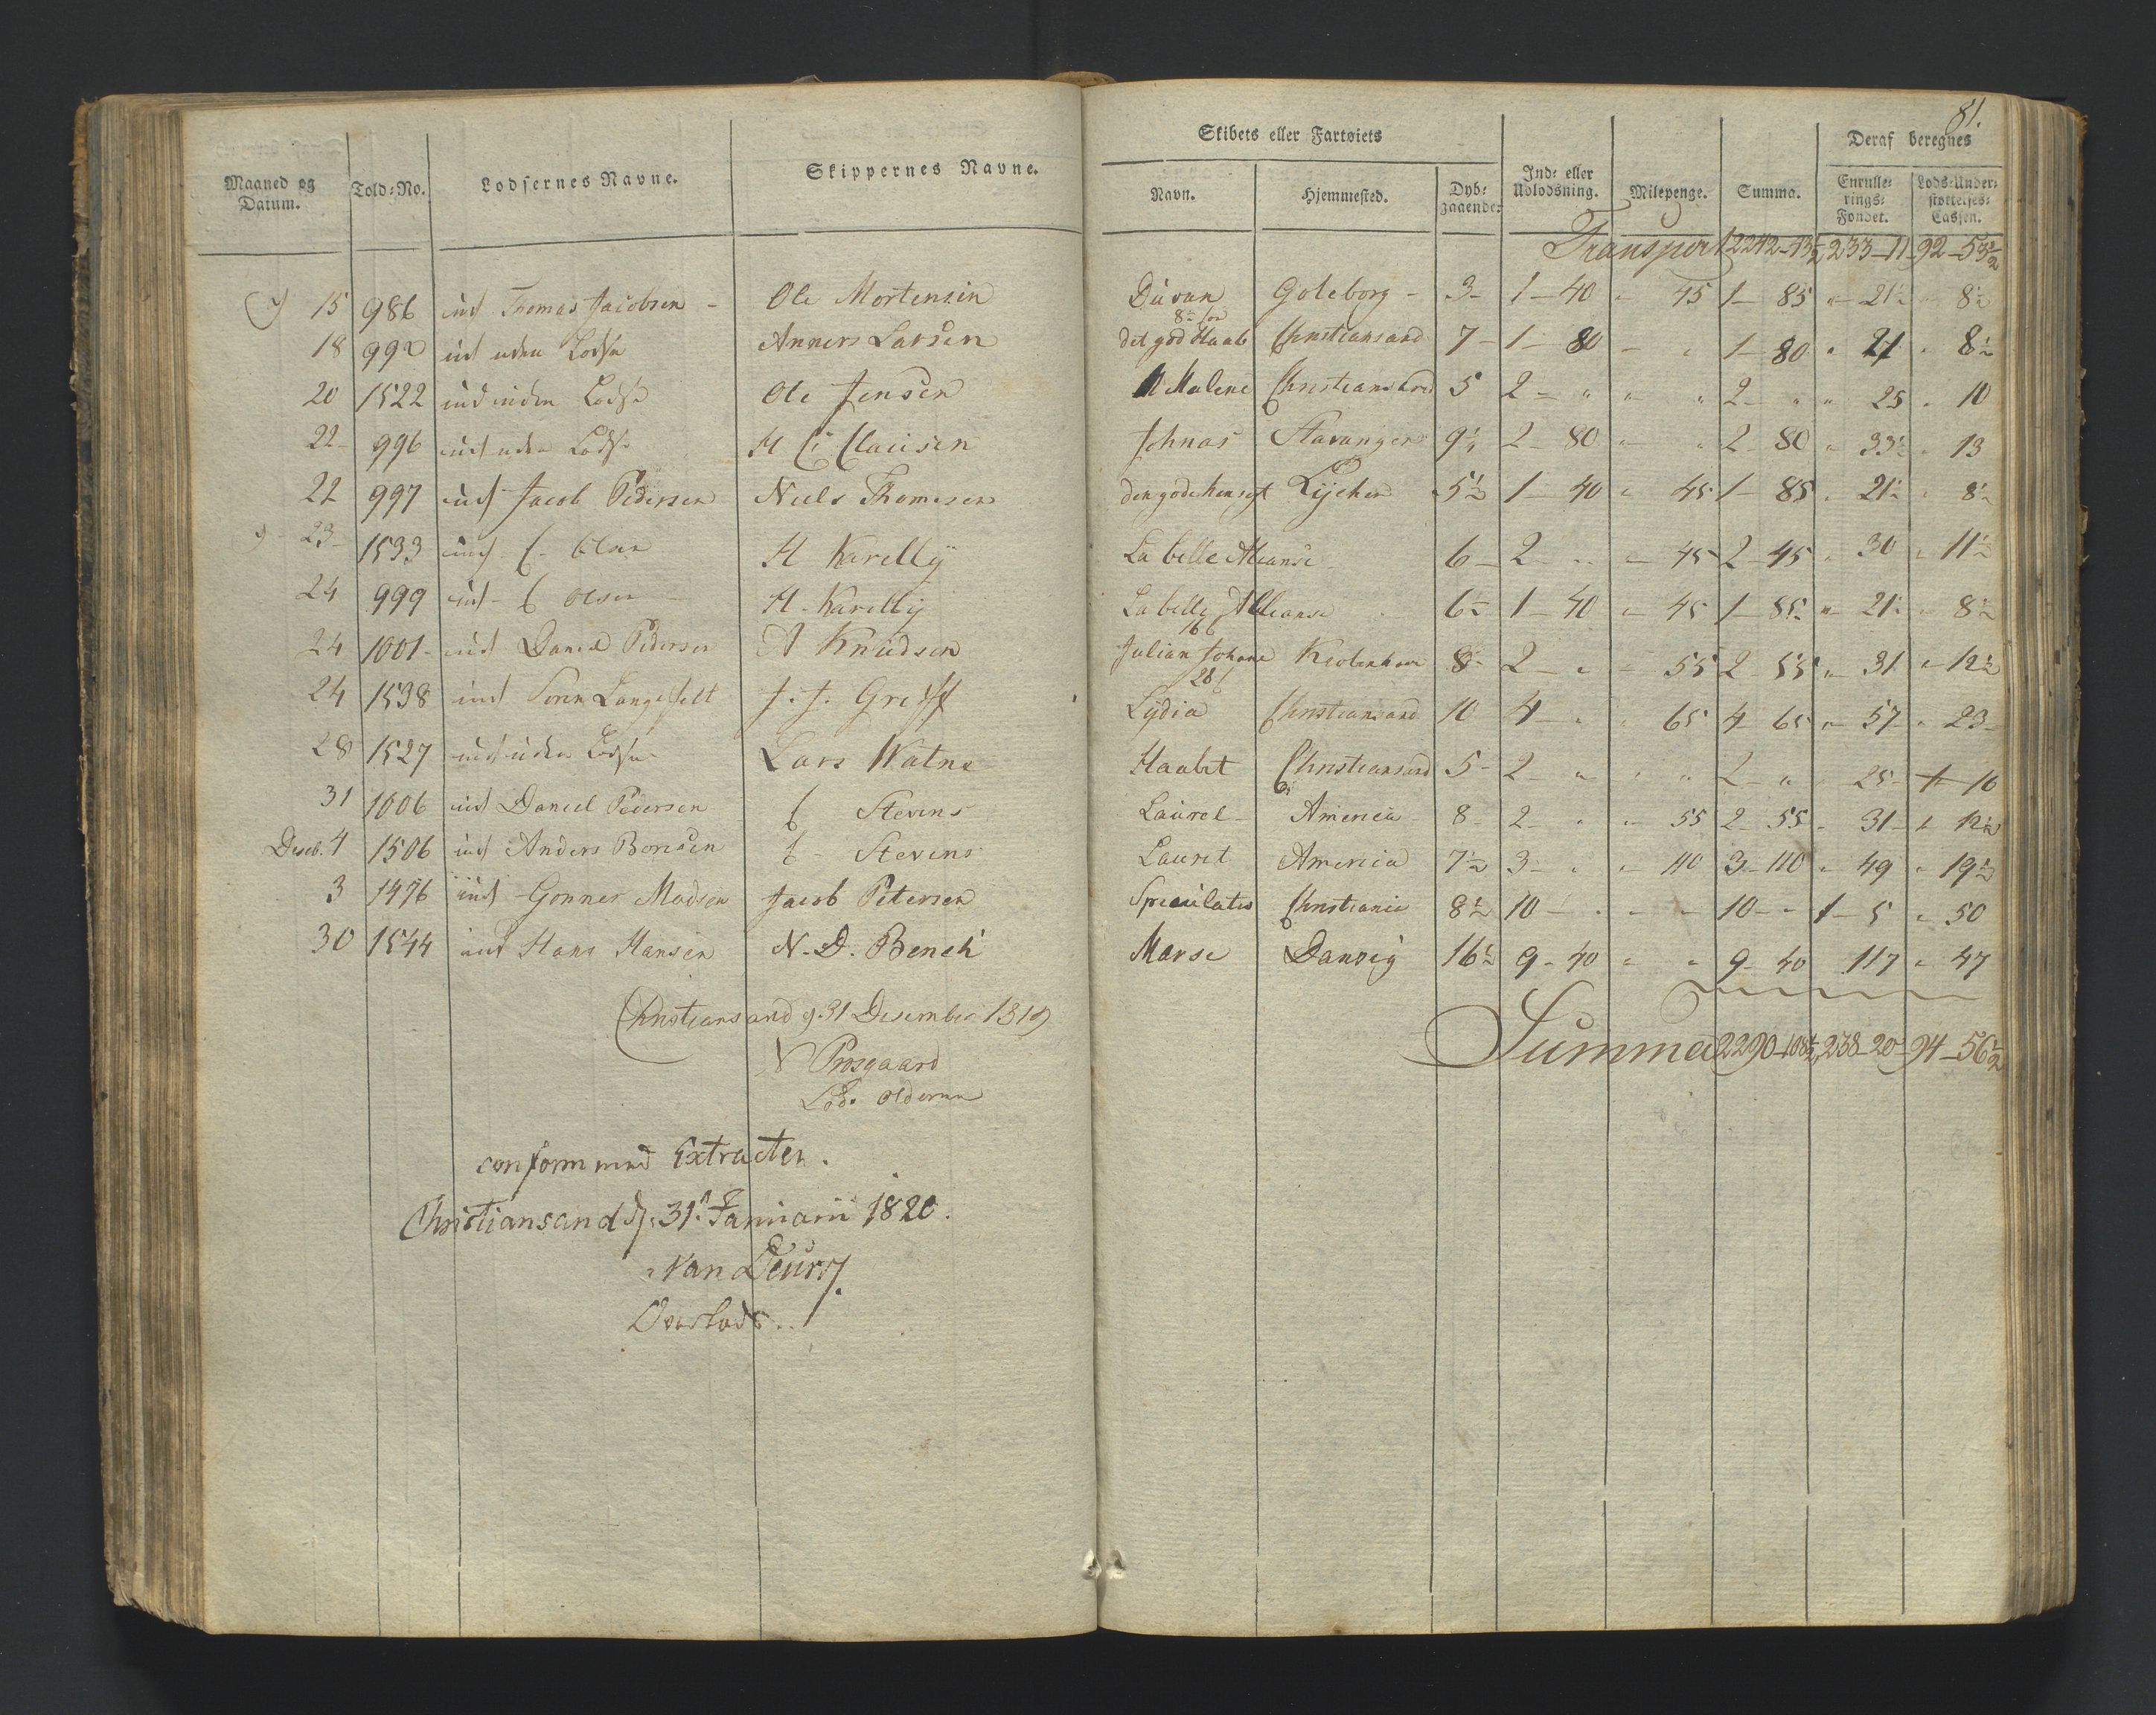 81.
Maaned og Datum. Told-No. Lodsernes Navne. Skippernes Navne. Skibets eller Fartøiets Navn. Hjemmested. Dyb-gaaende. Ind- eller Udlodsning. Milepenge. Summa. Deraf beregnes Enrullerings-Fondet. Lods-Understøttelses-Cassen.
Transport 2242-13½ 233-11 92-53½
15 986 ind Thomas Jacobsen - Ole Mortensen Duvan Goteborg - 3- 1-40 " 45 1-85 "-21½ " 8½
18 992 ind uden Lodse Anners Larsen det god Haab Christiansand 7- 1-80 - " 1-80 " 21 " 8½
20 1522 ind uden Lodse Ole Jensen Malene Christiansand 5 2-" " " 2-" " 25 " 10
22- 996 ind uden Lodse H C Clausen Johnas Stavanger 9½ 2-80 " " 2-80 " 33½ " 13
22 997 ind Jacob Pedersen Niels Thomesen den gode hensigt 5½ 1-40 " 45 1-85 " 21½ " 8½
23- 1533 ind C. Olsen H Karelly La belle Aleanse 6- 2 - " 45 2-45 " 30 " 11½
24 999 ind C Olsen H. Karelly La belle Alleanse 6½ 1-40 " 45 1-85 " 21½ " 8½
24 1001 ind Daniel Pedersen A Knudsen Julian Johane 8- 2-" - 55 2-55 " 31 " 12½
24 1538 ind Søren Langefelt J. J. Greiff Lydia Christiansand 10 4-" " 65 4-65 " 57 " 23-
28 1527 ind uden Lodse Lars Watne Haabet Christiansand 5- 2-" " " 2-" 25- 10
31 1006 ind Daniel Pedersen C Stevens Laurel America 8- 2-" " 55 2-55 - 31- " 12½
Deseb. 1 1506 ind Anders Bonsen C- Stevens Laurel America 7½ 3-" " 110 3-110 " 49 " 19½
3 1476 ind Gonner Madsen Jacob Petersen Speculates Christiania 8½ 10-" - - 10-- 1-5 " 50
30 1544 ind Hans Hansen N. D. Bench Marse Danzig 16½ 9-40 " " 9-40 117 " 47
Christiansand d. 31 Desember 1819
Summa 2290-108½ 238-20 94-56½
N Prosgaard
Lods Olderman
conform med Extracten.
Christiansand d. 31t Januarii 1820.
van Deurs
Overlods.